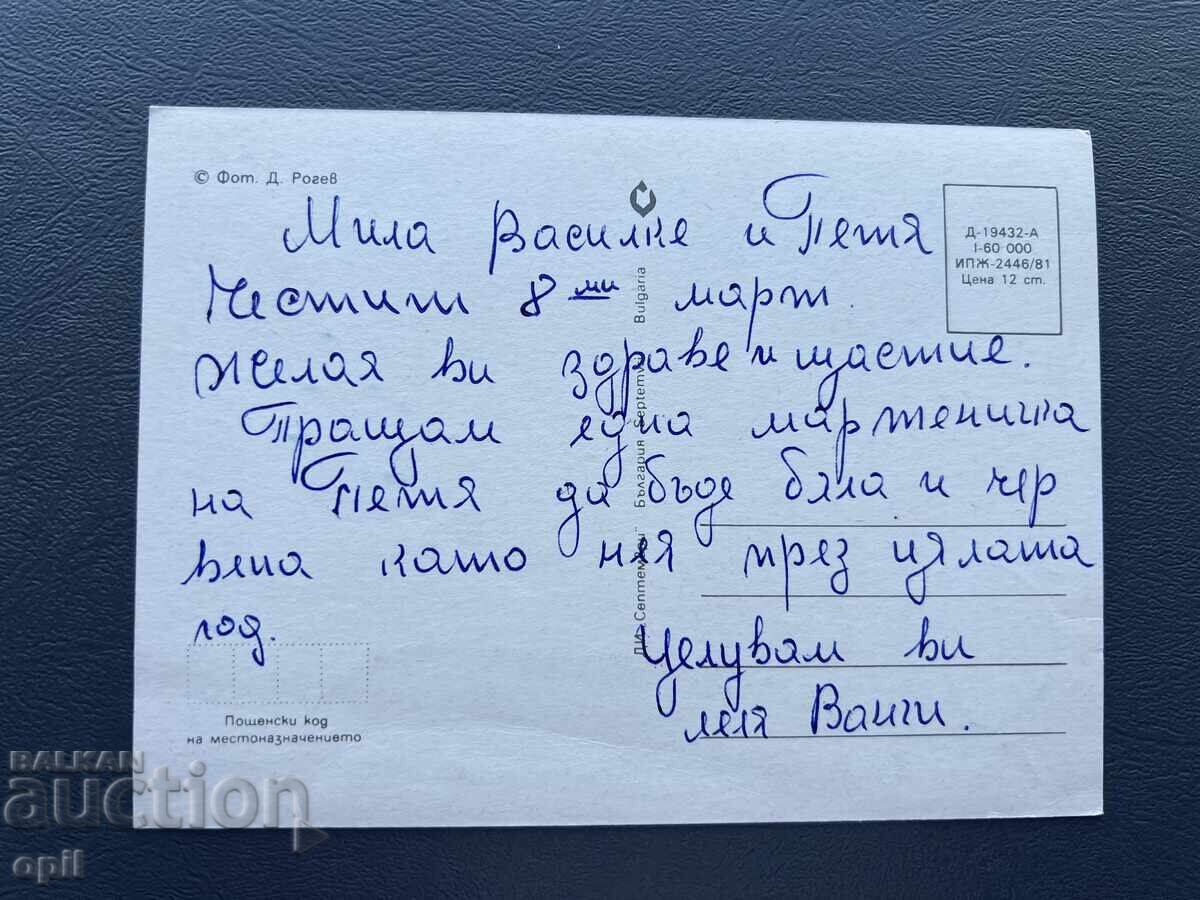 © Фот. Д. Рогев
Д-19432-А
I-60 000
ИПЖ-2446/81
Цена 12 ст.
Мила Василке и Петя
Честит 8ми март.
Желая ви здраве и щастие.
Пращам една мартеница
на Петя да бъде бяла и чер
вена като нея през цялата
год.
Целувам ви
леля Ванги.
ДИ „Септември" България Septemvri Bulgaria
Пощенски код
на местоназначението
BALKAN
auction
opil